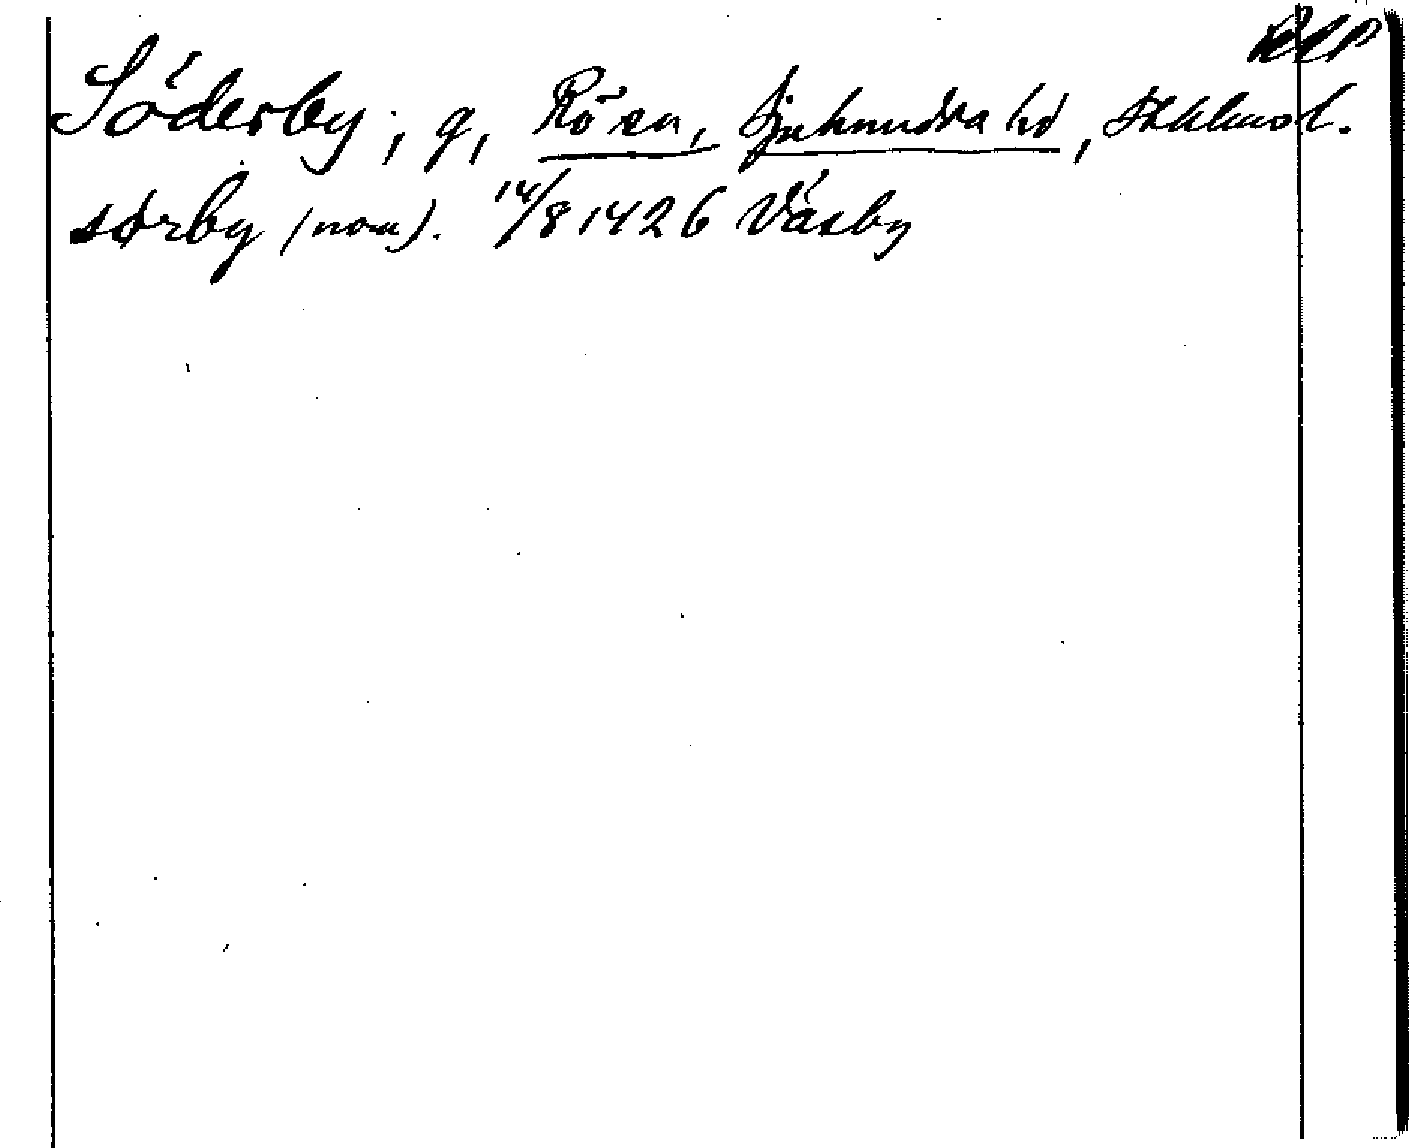 Söderby, g, Rö sn, Sjuhundra hd, Sthlms l.
sørby (noa). 14/8 1426 Väsby